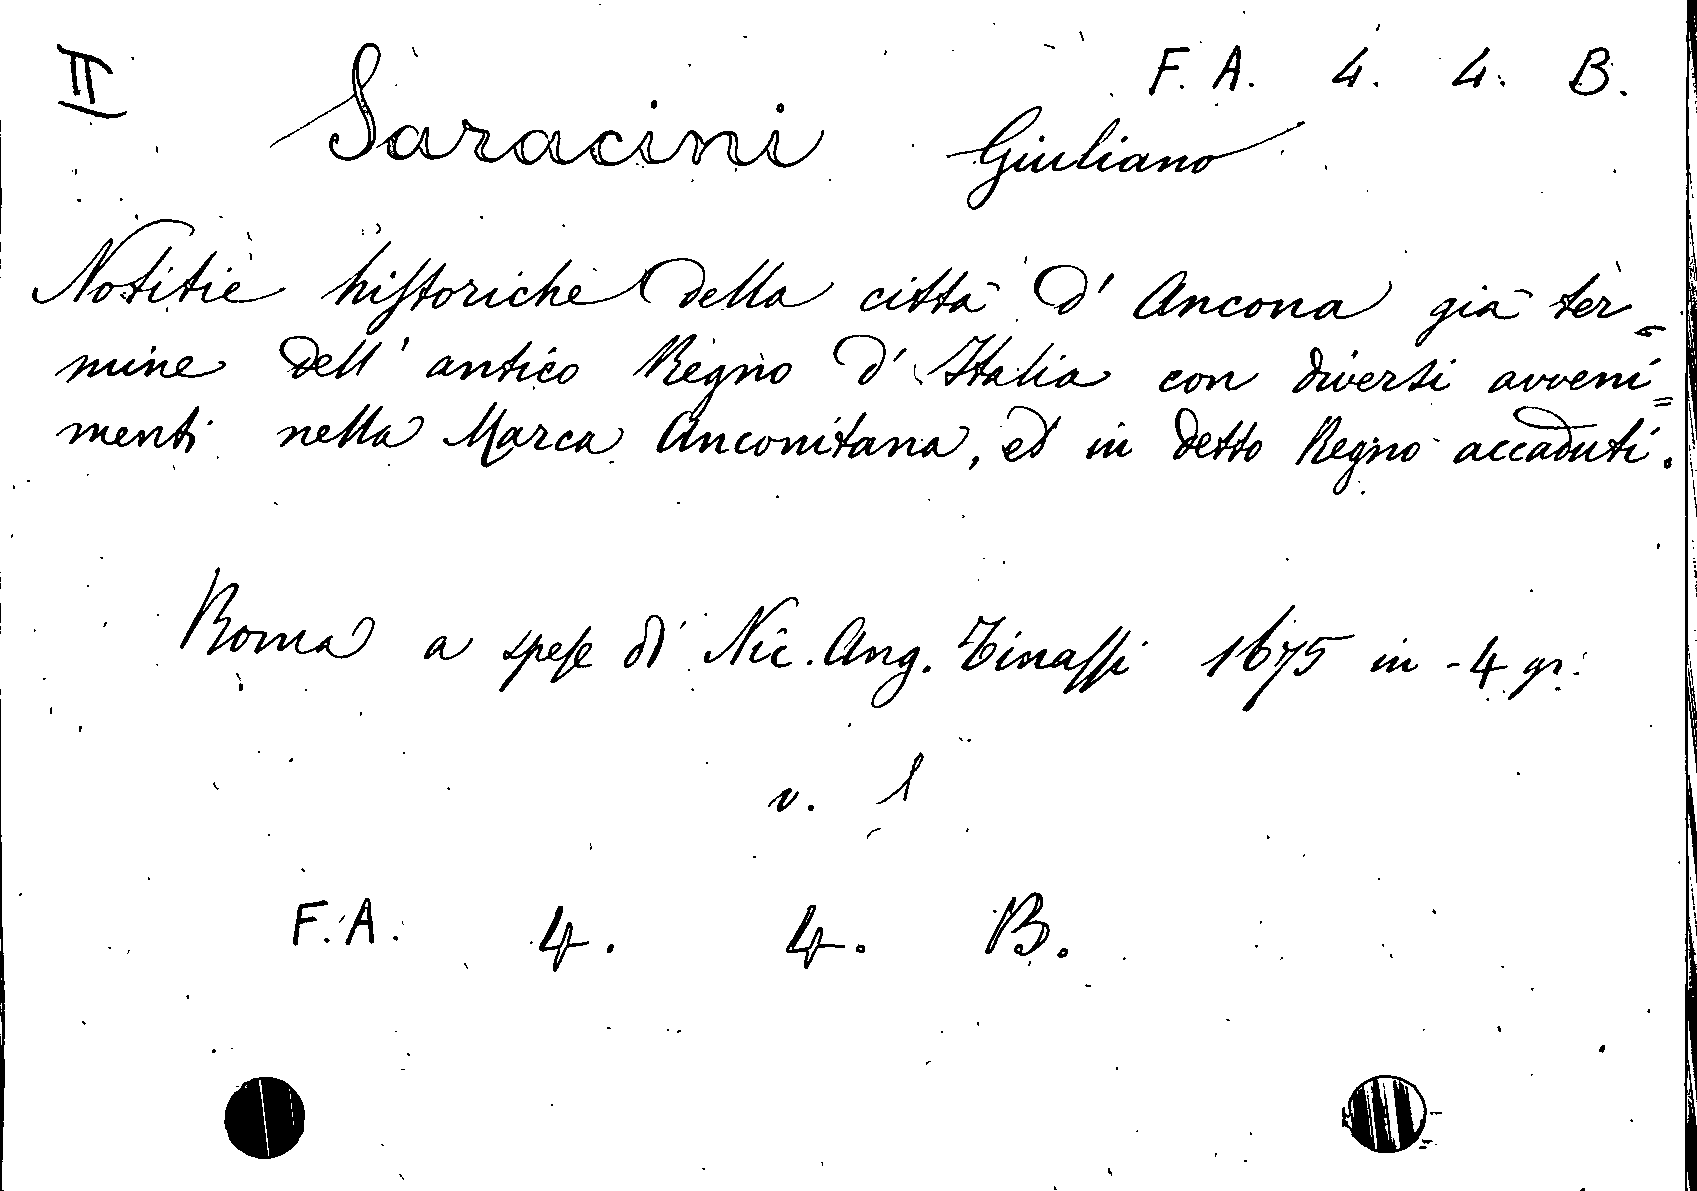 II F. A. 4. 4. B.
Saracini Giuliano
Notitie historiche della città d' Ancona già ter=
mine dell' antico Regno d' Italia con diversi avveni=
menti nella Marca Anconitana, ed in detto Regno accaduti.
Roma a spese di Nic. Ang. Tinassi 1675 in-4 gr.
v. 1
F. A. 4. 4. B.